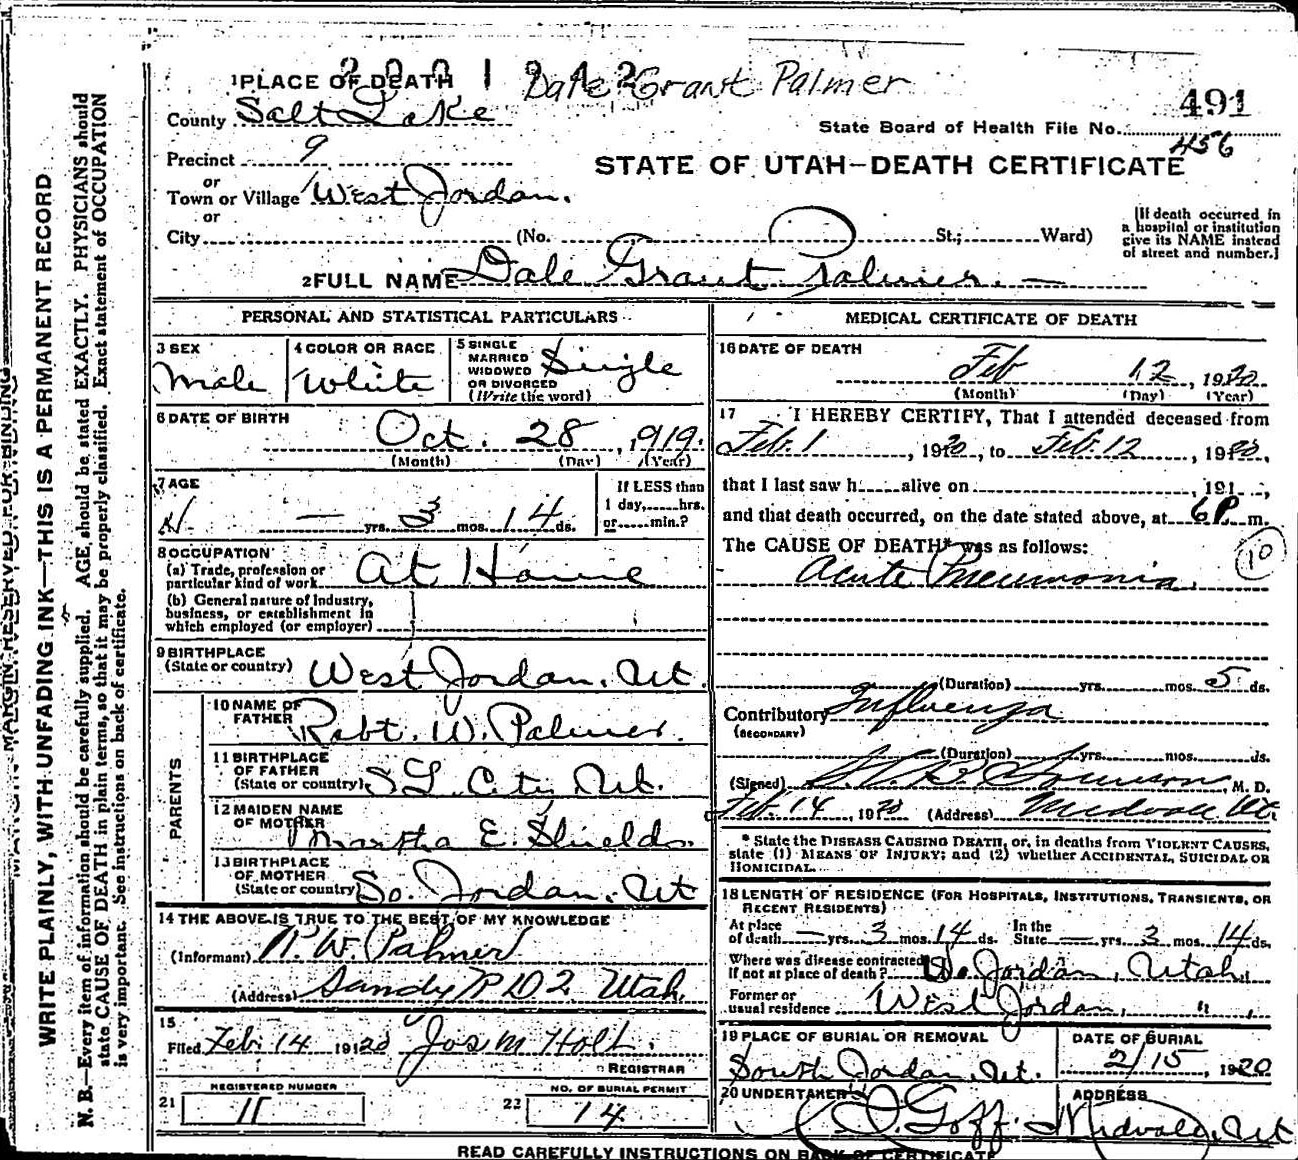 1 PLACE OF DEATH
Dale Grant Palmer
491
County Salt Lake
State Board of Health File No.
456
Precinct 9
STATE OF UTAH—DEATH CERTIFICATE
or
Town or Village West Jordan.
or
City (No. St.; Ward)
[If death occurred in
a hospital or institution
give its NAME instead
of street and number.]
2 FULL NAME Dale Grant Palmer.
PERSONAL AND STATISTICAL PARTICULARS
3 SEX
Male
4 COLOR OR RACE
White
5 SINGLE
MARRIED
WIDOWED
OR DIVORCED
(Write the word)
Single
6 DATE OF BIRTH
Oct. 28, 1919.
(Month) (Day) (Year)
7 AGE
— yrs. 3 mos. 14 ds.
If LESS than
1 day, hrs.
or min.?
8 OCCUPATION
(a) Trade, profession or
particular kind of work At Home
(b) General nature of Industry,
business, or establishment in
which employed (or employer)
9 BIRTHPLACE
(State or country) West Jordan, Ut.
PARENTS
10 NAME OF
FATHER Robt. W. Palmer.
11 BIRTHPLACE
OF FATHER
(State or country) S L. City Ut.
12 MAIDEN NAME
OF MOTHER Martha E. Shields.
13 BIRTHPLACE
OF MOTHER
(State or country) So. Jordan, Ut
14 THE ABOVE IS TRUE TO THE BEST OF MY KNOWLEDGE
(Informant) R. W. Palmer
(Address) Sandy R D 2 Utah.
15
Filed Feb. 14 1920 Jos M Holt.
REGISTRAR
REGISTERED NUMBER
21 11
NO. OF BURIAL PERMIT
22 14
MEDICAL CERTIFICATE OF DEATH
16 DATE OF DEATH
Feb 12, 1920
(Month) (Day) (Year)
17 I HEREBY CERTIFY, That I attended deceased from
Feb. 1, 1920, to Feb. 12, 1920,
that I last saw h alive on , 191 ,
and that death occurred, on the date stated above, at 6 P. m.
The CAUSE OF DEATH* was as follows:
10
Acute Pneumonia.
(Duration) yrs. mos. 5 ds.
Contributory Influenza
(SECONDARY)
(Duration) yrs. mos. ds.
(Signed) , M. D.
Feb. 14, 1920 (Address) Midvale Ut.
* State the DISEASE CAUSING DEATH, or, in deaths from VIOLENT CAUSES,
state (1) MEANS OF INJURY; and (2) whether ACCIDENTAL, SUICIDAL OR
HOMICIDAL.
18 LENGTH OF RESIDENCE (FOR HOSPITALS, INSTITUTIONS, TRANSIENTS, OR
RECENT RESIDENTS)
At place
of death — yrs. 3 mos. 14 ds.
In the
State — yrs. 3 mos. 14 ds.
Where was disease contracted
If not at place of death? Jordan, Utah.
Former or
usual residence West Jordan, "
19 PLACE OF BURIAL OR REMOVAL
South Jordan, Ut.
DATE OF BURIAL
2/15, 1920
20 UNDERTAKER
Goff.
ADDRESS
Midvale, Ut
READ CAREFULLY INSTRUCTIONS ON BACK OF CERTIFICATE
MARGIN RESERVED FOR BINDING
WRITE PLAINLY, WITH UNFADING INK—THIS IS A PERMANENT RECORD
N. B.—Every item of information should be carefully supplied. AGE should be stated EXACTLY. PHYSICIANS should
state CAUSE OF DEATH in plain terms, so that it may be properly classified. Exact statement of OCCUPATION
is very important. See instructions on back of certificate.